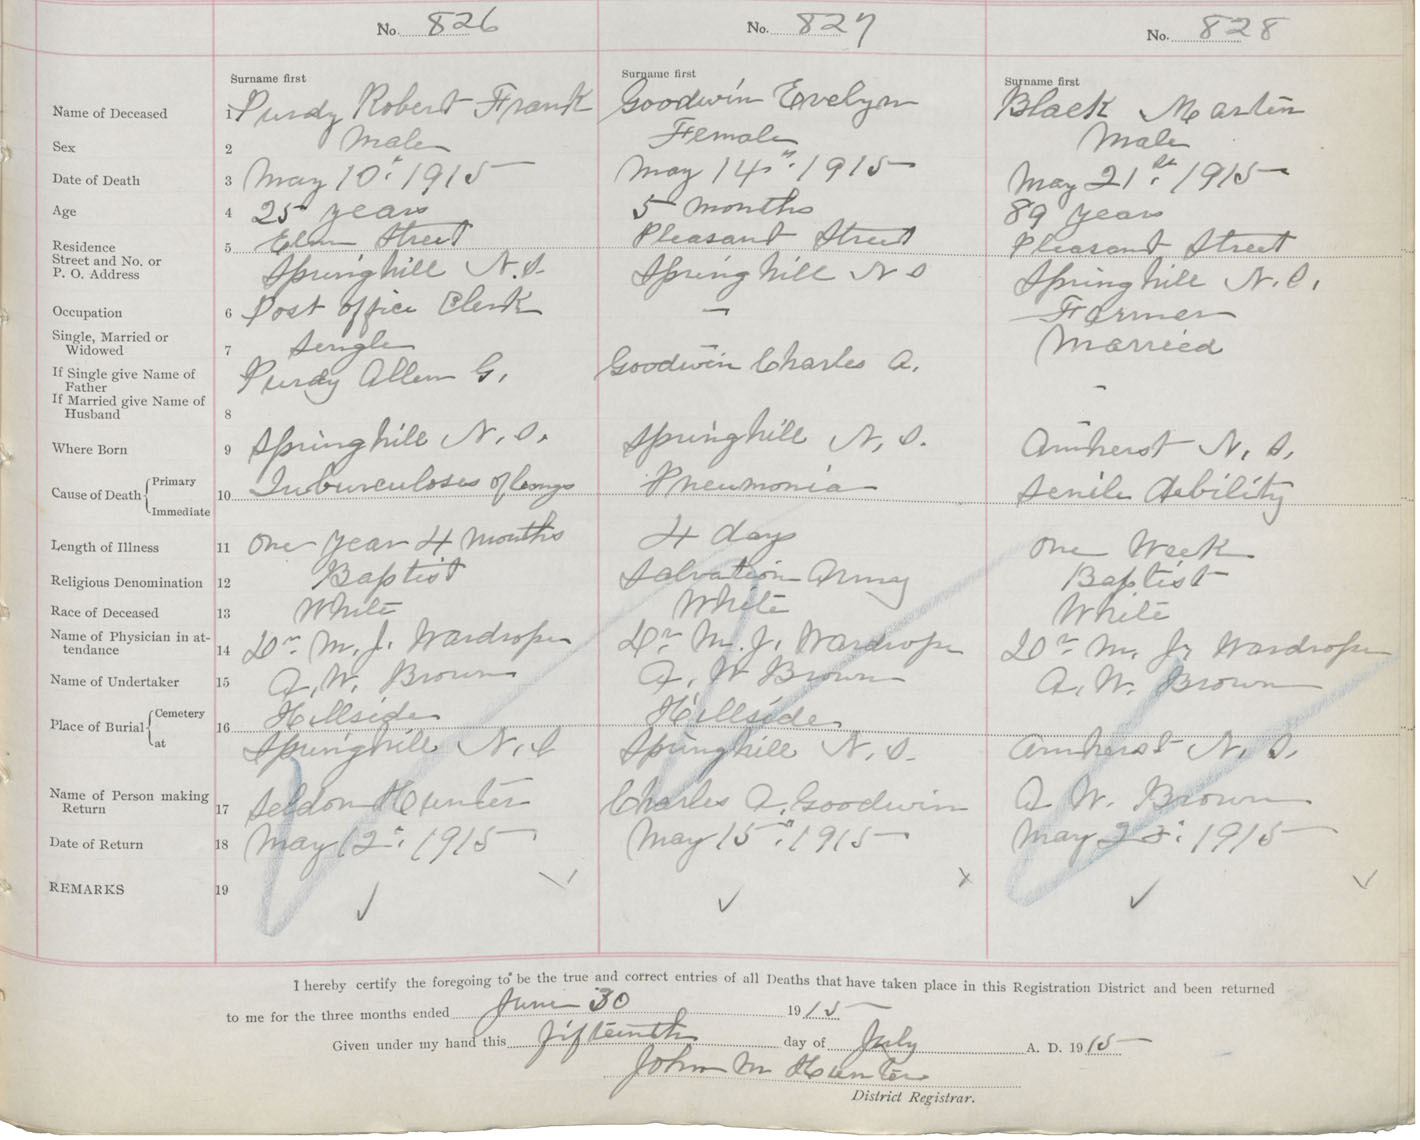 No. 826 No. 827 No. 828
Surname first Surname first Surname first
Name of Deceased 1 Purdy Robert Frank Goodwin Evelyn Black Martin
Sex 2 Male Female Male
Date of Death 3 May 10th 1915 May 14th 1915 May 21st 1915
Age 4 25 years 5 months 89 years
Residence 5 Elm Street Pleasant Street Pleasant Street
Street and No. or
P. O. Address Springhill N.S. Springhill N S Springhill N.S.
Occupation 6 Post office Clerk - Farmer
Single, Married or
Widowed 7 Single - Married
If Single give Name of
Father Purdy Allen G. Goodwin Charles A. -
If Married give Name of
Husband 8
Where Born 9 Springhill N.S. Springhill N.S. Amherst N.S.
Cause of Death Primary 10 Tuburculoses of lungs Pneumonia Senile debility
Immediate
Length of Illness 11 One year 4 months 4 days One Week
Religious Denomination 12 Baptist Salvation Army Baptist
Race of Deceased 13 White White White
Name of Physician in at-
tendance 14 Dr. M. J. Wardrope Dr. M. J. Wardrope Dr. M. J. Wardrope
Name of Undertaker 15 A. W. Brown A. W Brown A. W. Brown
Place of Burial Cemetery 16 Hillside Hillside
at Springhill N.S Springhill N.S. Amherst N.S.
Name of Person making
Return 17 Seldon Hunter Charles A. Goodwin A W. Brown
Date of Return 18 May 12th 1915 May 15th 1915 May 1915
REMARKS 19 ✓ ✓ ✓
I hereby certify the foregoing to be the true and correct entries of all Deaths that have taken place in this Registration District and been returned
to me for the three months ended June 30 1915
Given under my hand this fifteenth day of July A. D. 1915
John M Hunter
District Registrar.